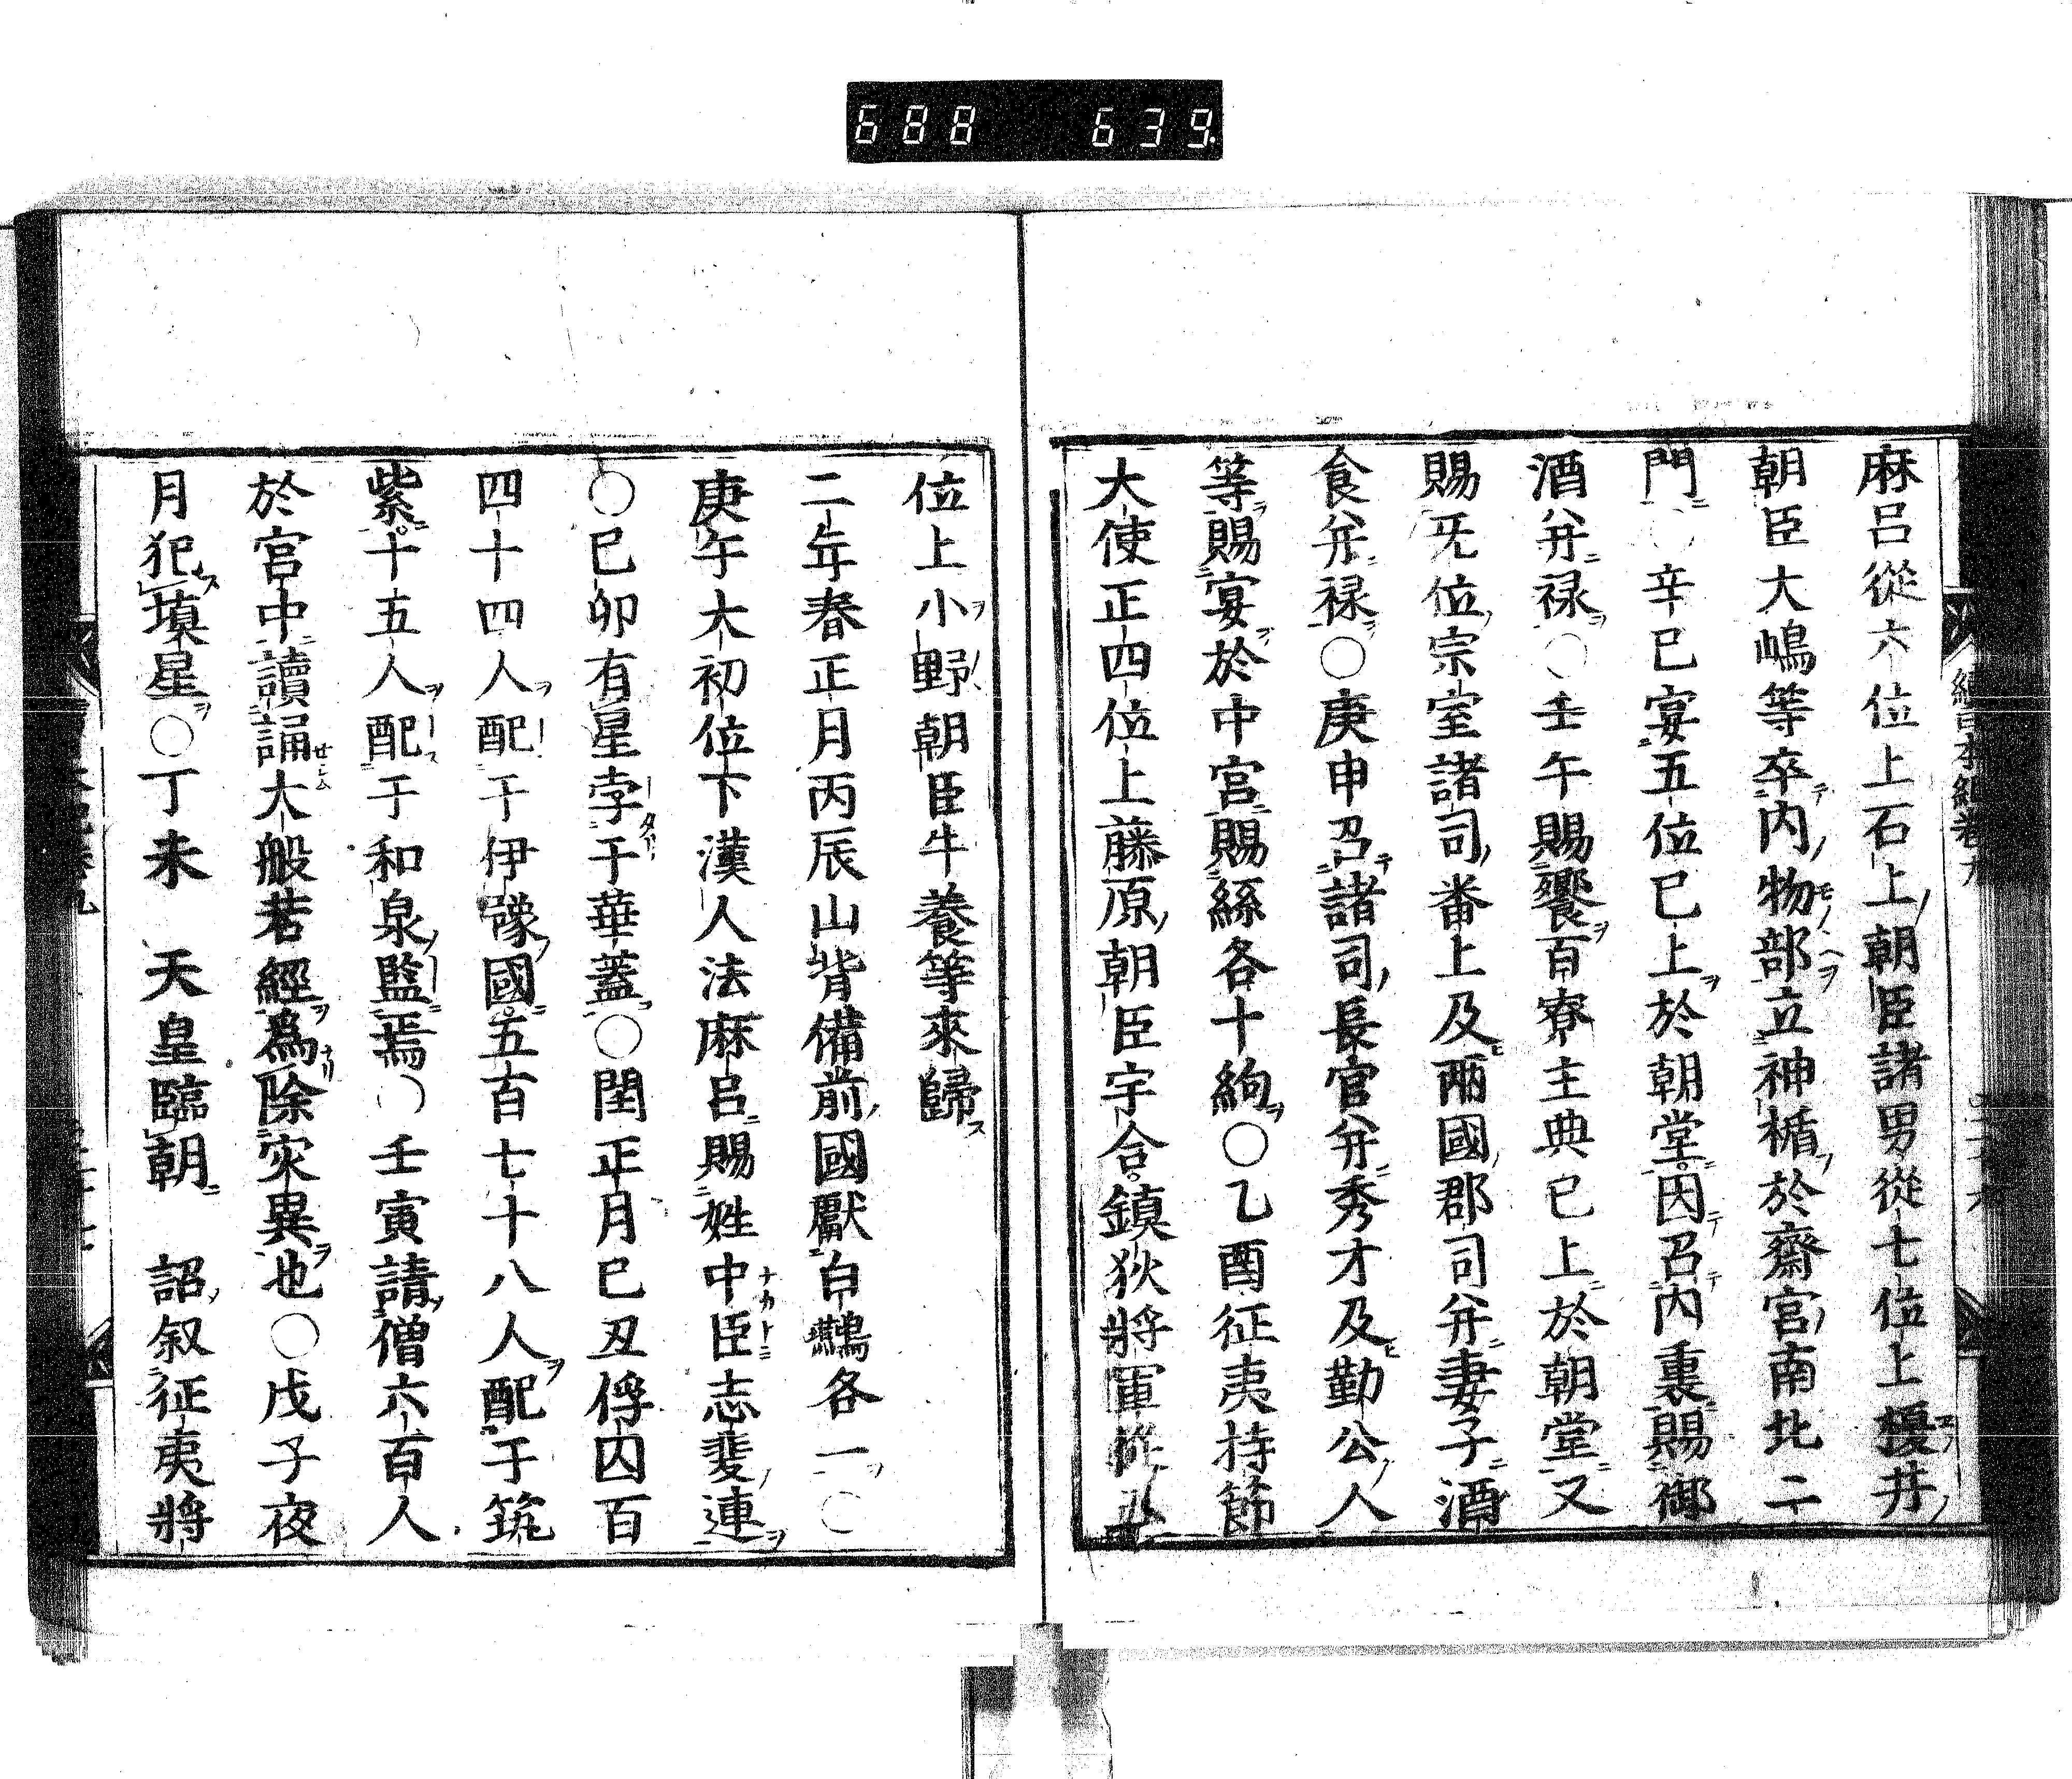 688 639
麻呂從六位上石上朝臣諸男從七位上榎井
朝臣大嶋等卒内物部立神楯於齋宮南北二
門○辛巳宴五位已上於朝堂因召内裏賜御
酒并禄○壬午賜饗百寮主典已上於朝堂又
賜无位宗室諸司番上及兩國郡司并妻子酒
食并禄○庚申召諸司長官并秀才及勤公人
等賜宴於中宮賜絲各十絇○乙酉征夷持節
大使正四位上藤原朝臣宇合鎮狄將軍從五
位上小野朝臣牛養等來歸
二年春正月丙辰山背備前國獻白鷰各一○
庚午大初位下漢人法麻呂賜姓中臣志斐連
○己卯有星孛于華蓋○閏正月己丑俘囚百
四十四人配于伊豫國五百七十八人配于筑
紫十五人配于和泉監焉○壬寅請僧六百人
於宮中讀誦大般若經爲除灾異也○戊子夜
月犯塡星○丁未 天皇臨朝 詔叙征夷將